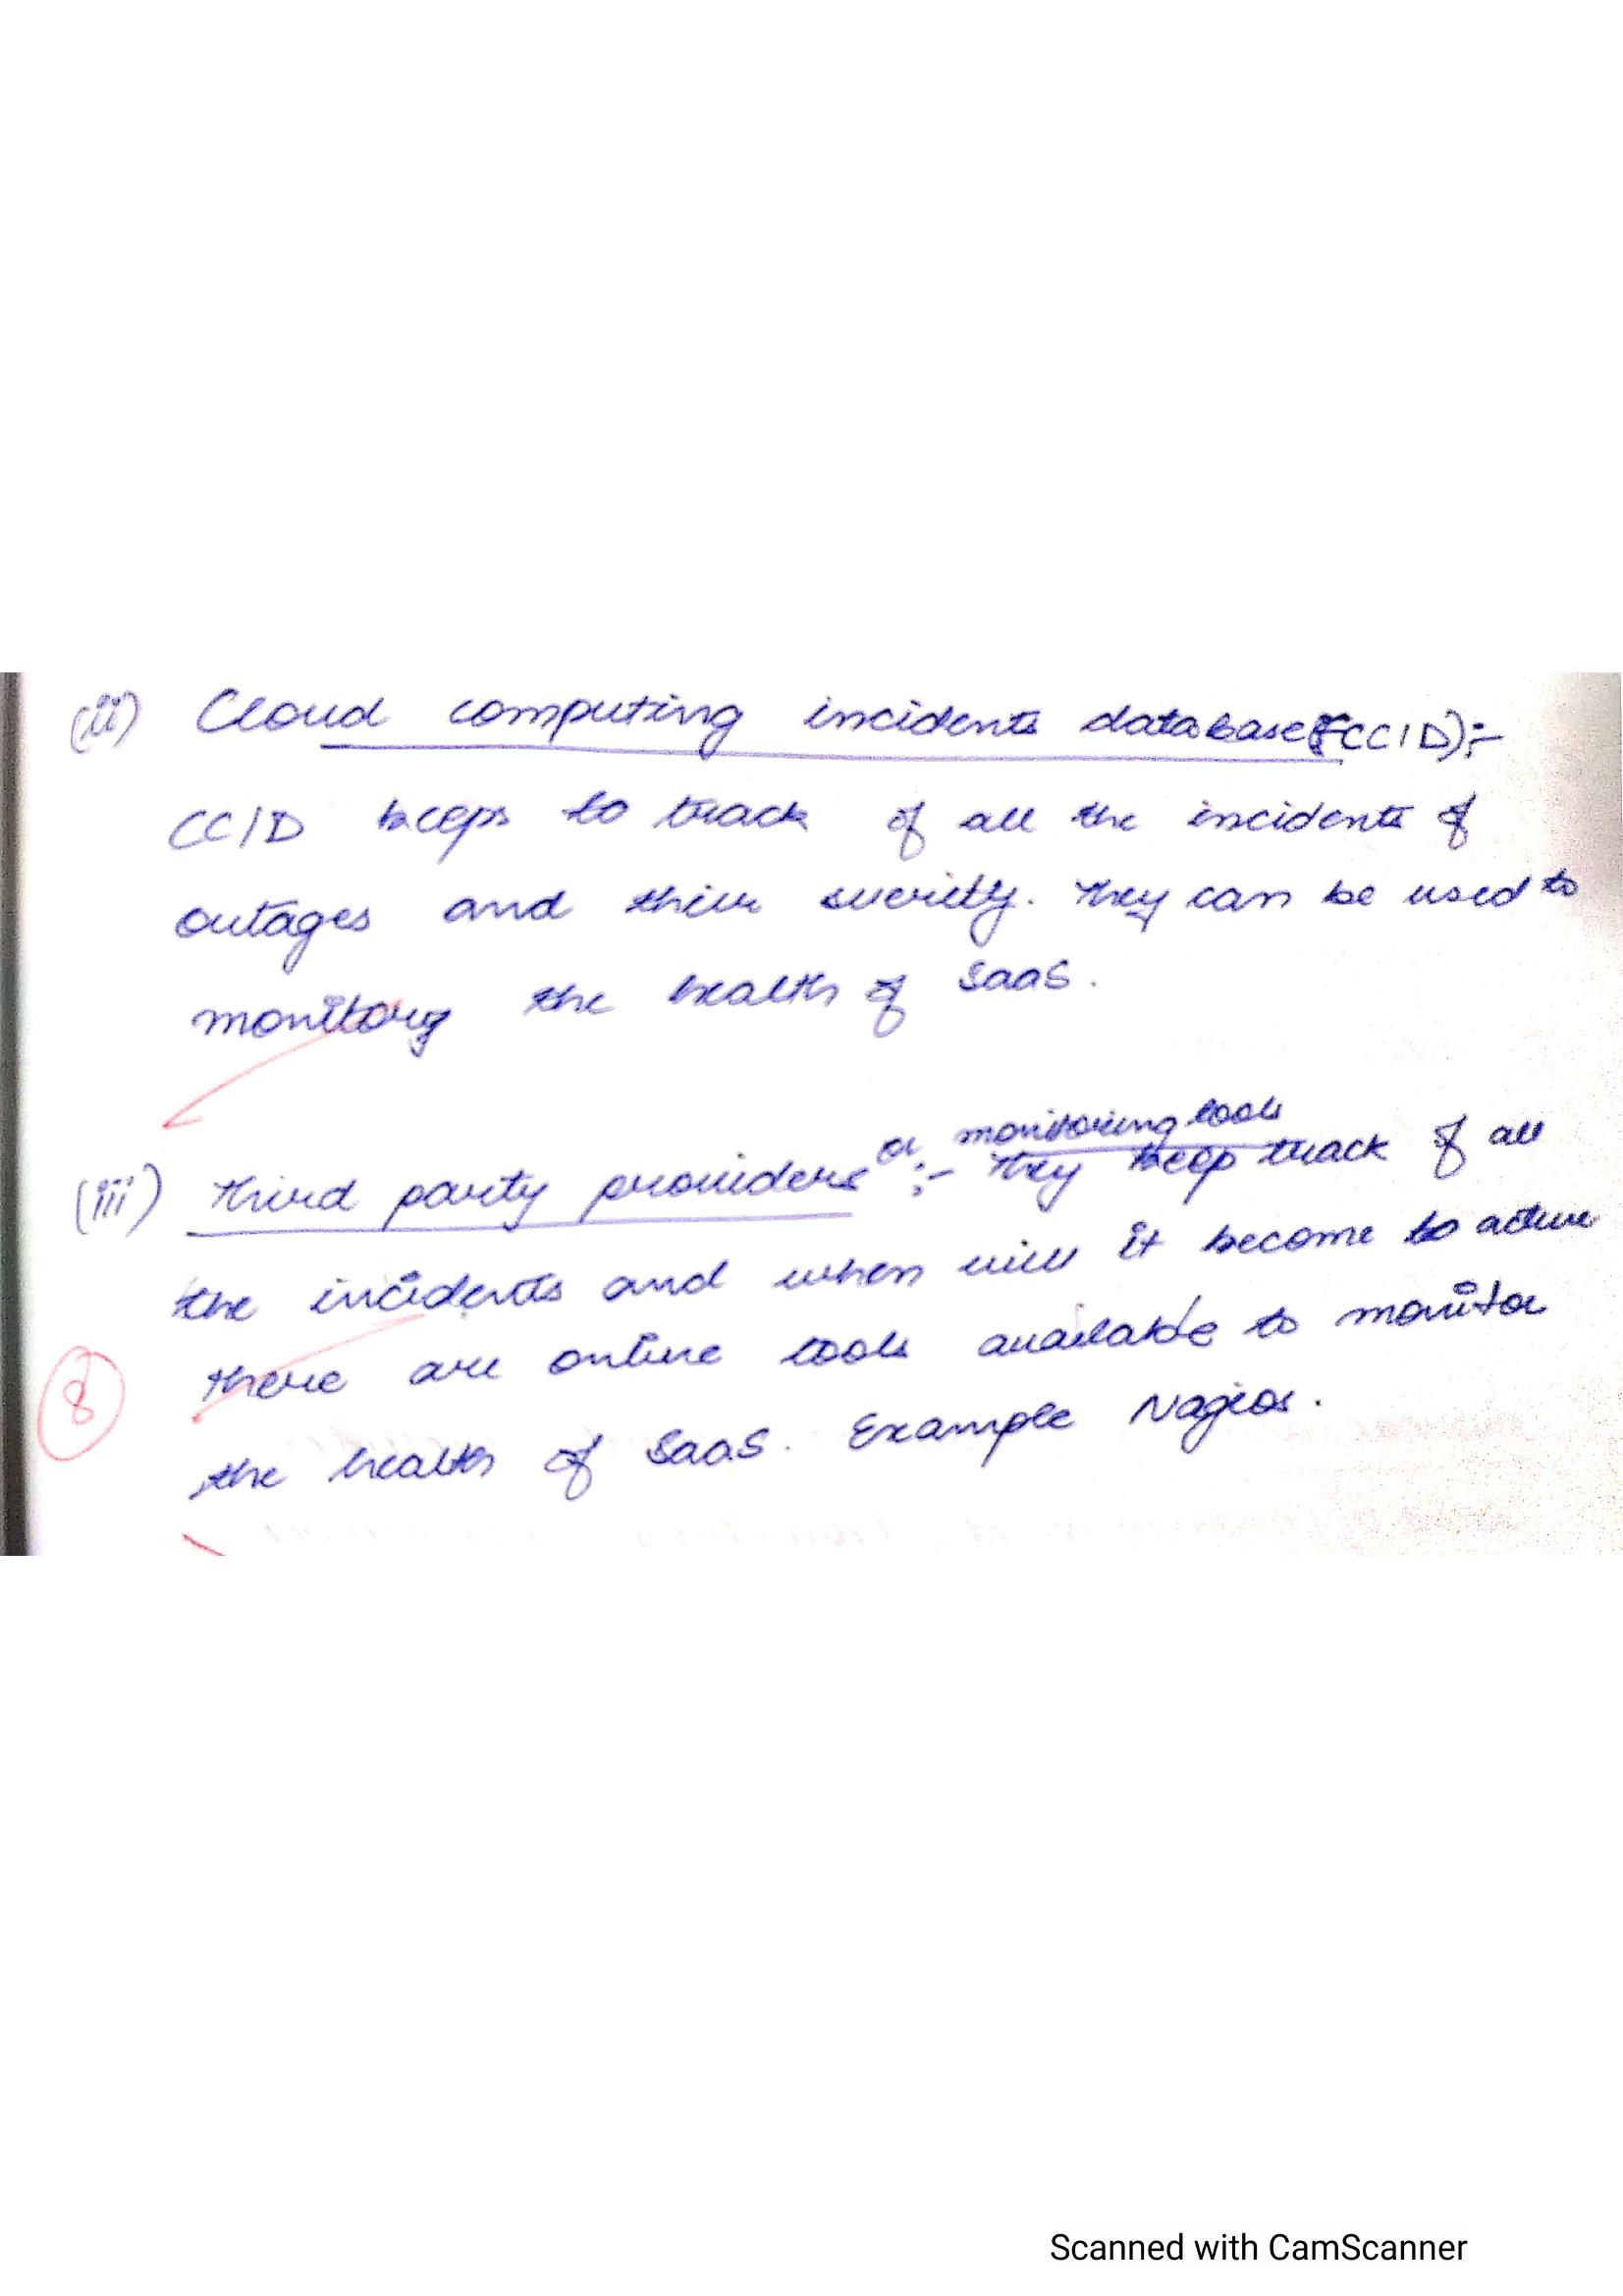 (ii) Cloud computing incidents database (CCID):-
CCID keeps to track of all the incidents of
outages and thier sverity. They can be used to
monitorg the health of SaaS.
(iii) Third party providers or monitoring tools :- They keep track of all
the incidents and when will it become to active
there are online tools available to monitor
8
the health of SaaS. Example Nagios.
Scanned with CamScanner